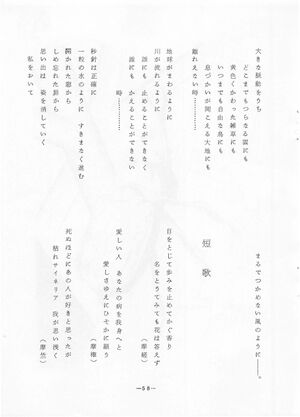 大きな振動をうち
どこまでもつらなる雲にも
黄色くかわった雑草にも
いつまでも自由な鳥にも
息づかいが聞こえる大地にも
離れえない時………
地球がまわるように
川が流れるように
誰にも 止めることができなく
誰にも かえることができない
時………
秒針は正確に
一粒の水のように すきまなく進む
開かれた窓から
しめ忘れた扉から
思い出は 姿を消していく
私をおいて
まるでつかめない風のように――。
短歌
目をとじて歩みを止めてかぐ香り
名をとうてみても花は答えず
愛しい人 あなたの病を我身へと
愛しさゆえにひそかに願う
死ぬほどにあの人が好きと思ったが
枯れサイネリア 我が思い浅く
―58―